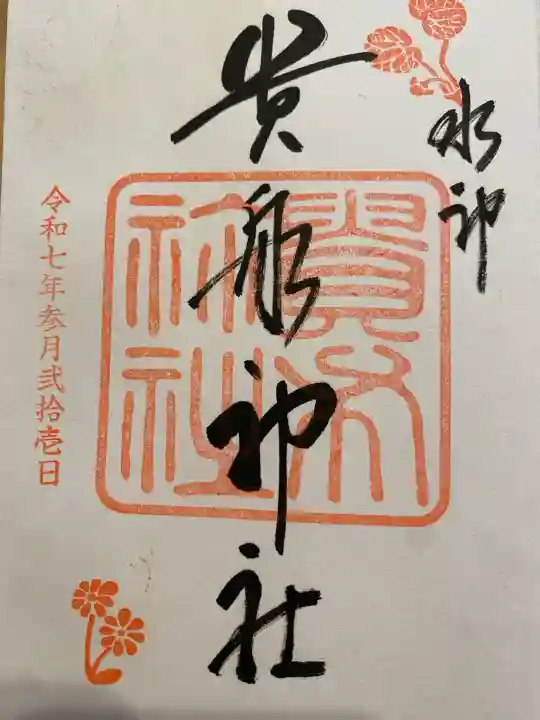 水神
貴船神社
貴布
祢社
令和七年参月弐拾壱日